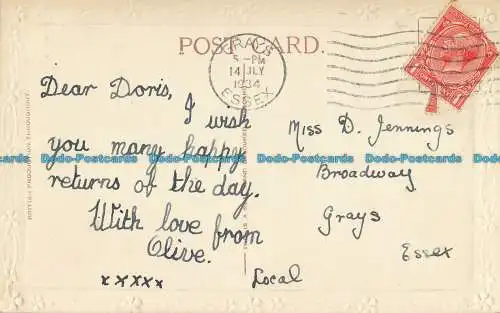 POST CARD.
GRAYS
5 - PM
14 JLY
1934
ESSEX
Dear Doris,
I wish
you many happy
returns of the day.
With love from
Olive.
xxxxx
Miss D. Jennings
Broadway
Grays
Essex
Local
Dodo-Postcards Dodo-Postcards Dodo-Postcards Dodo-Postcards
Dodo-Postcards Dodo-Postcards Dodo-Postcards Dodo-Postcards